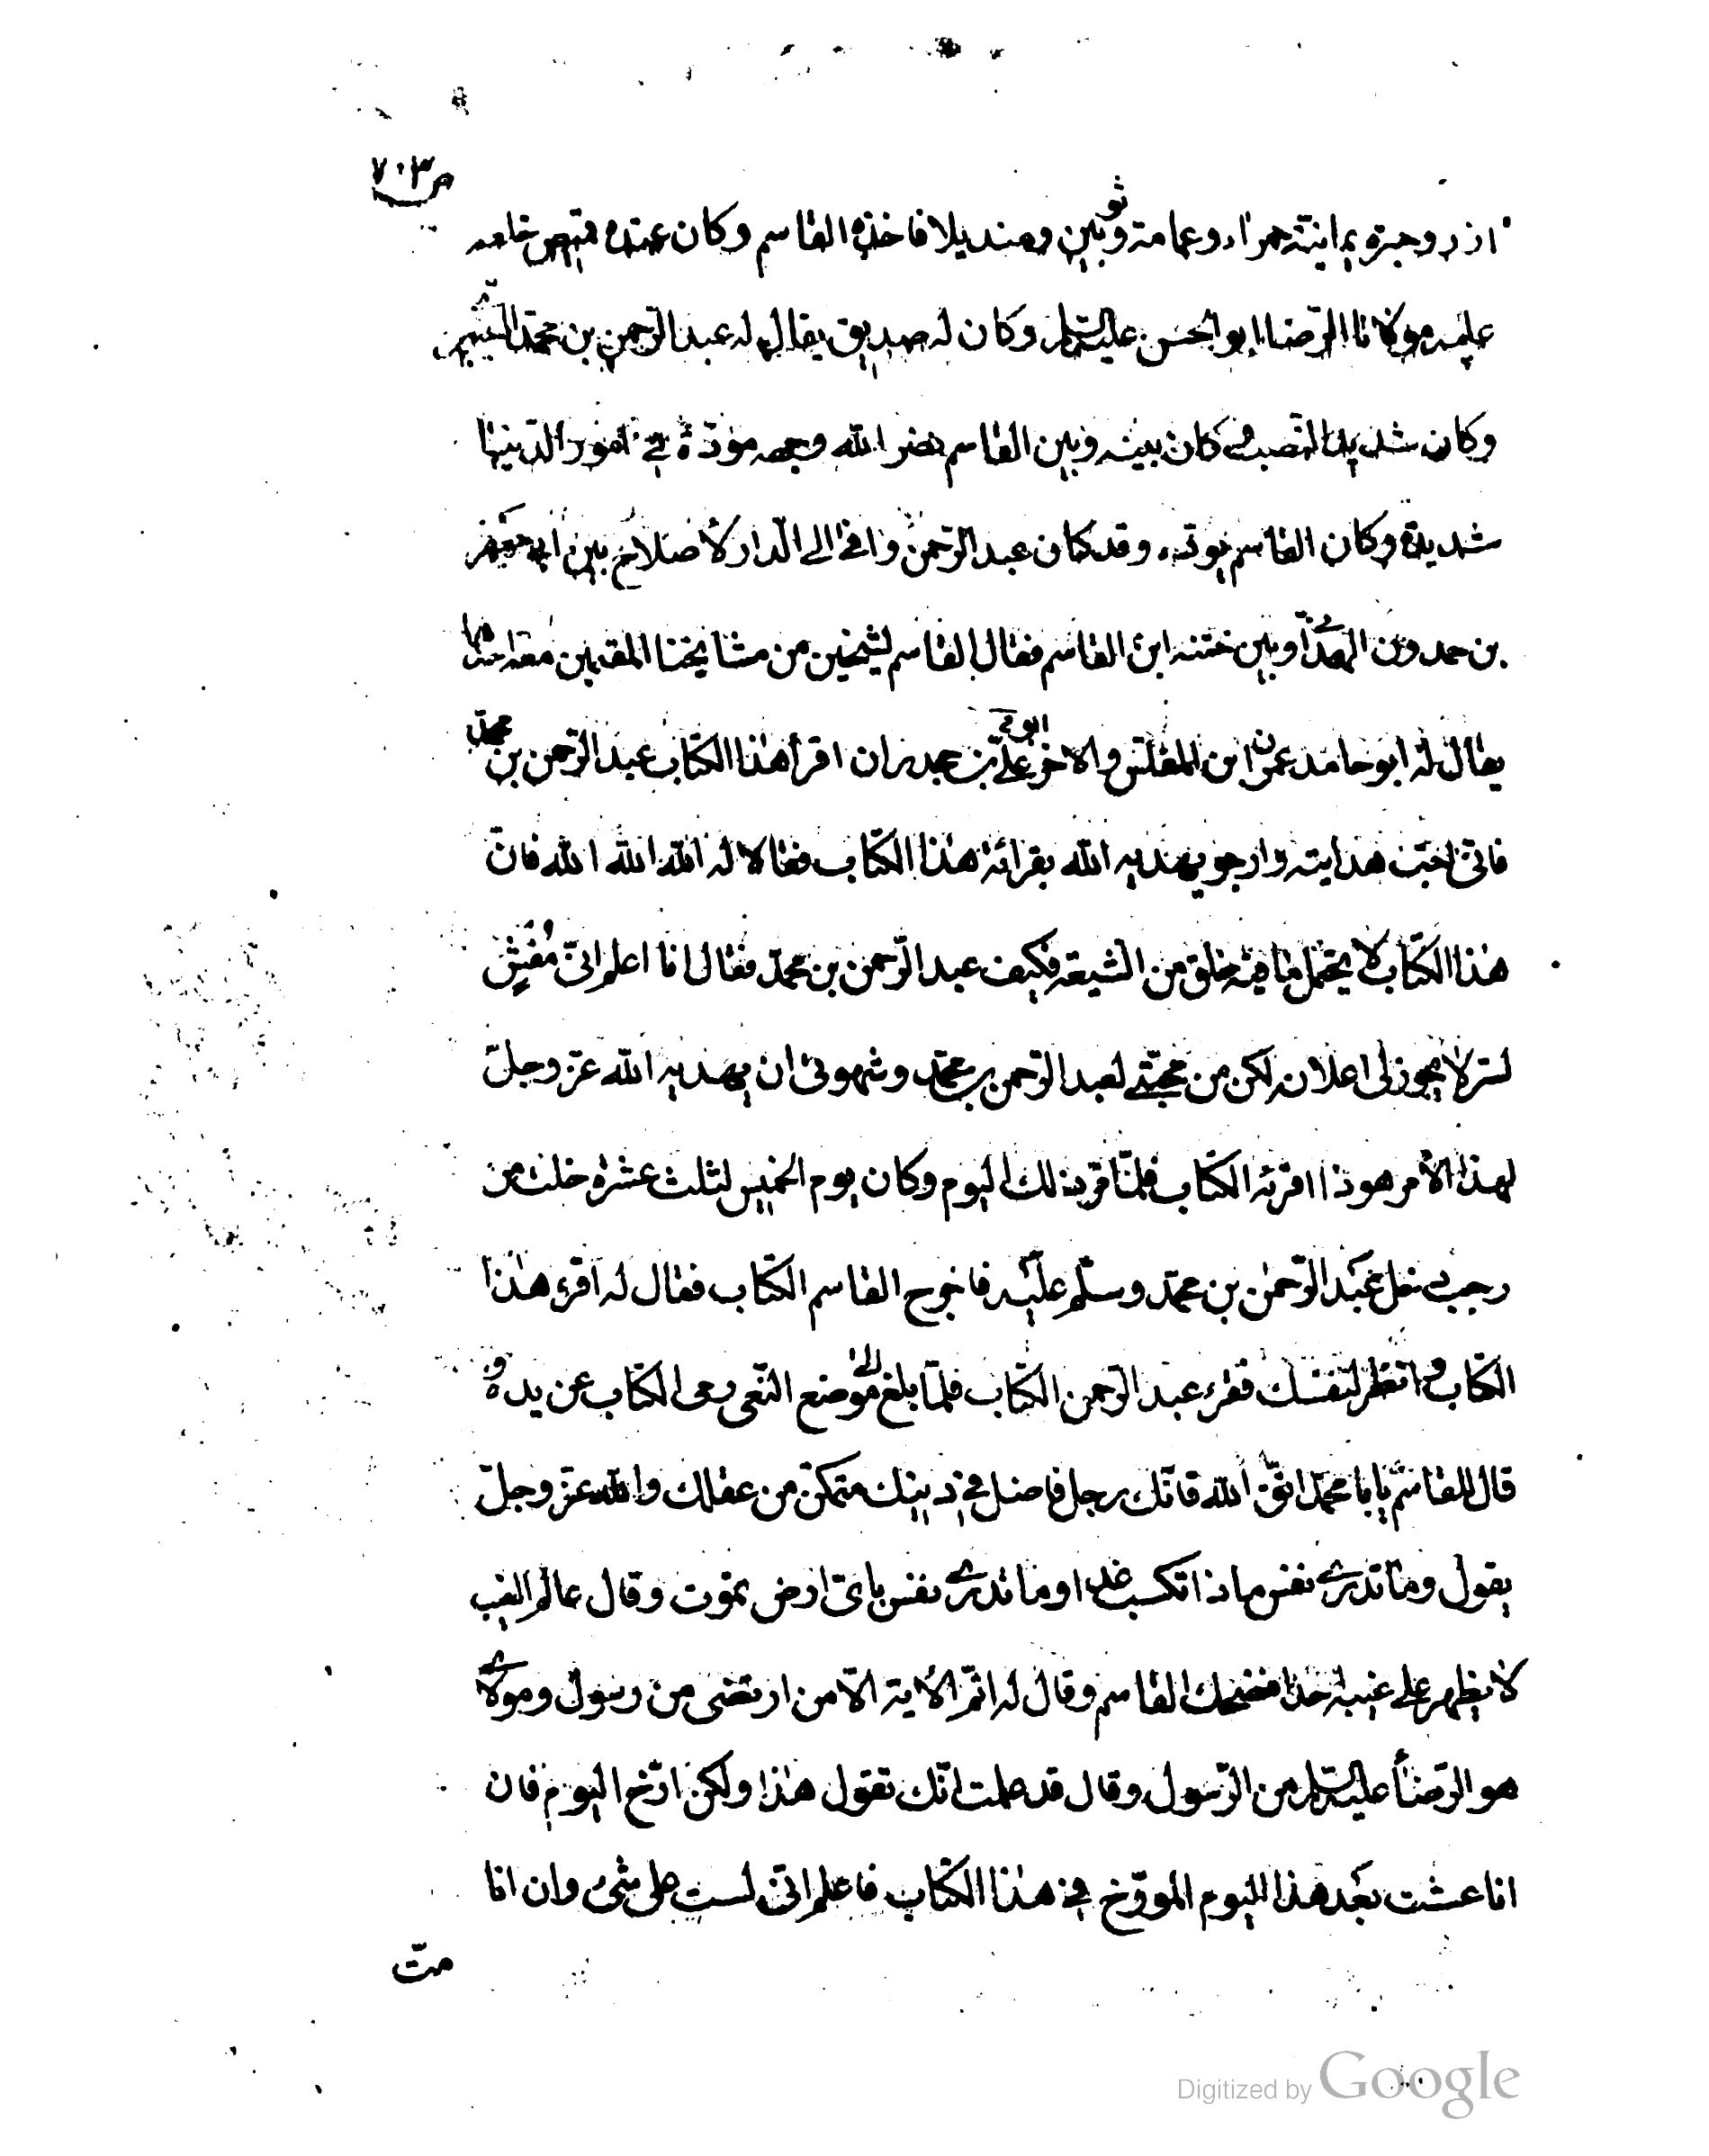 ص ٧٠٣
ازر وحبرة يمانية حمراء وعمامة وثوبين ومنديلا فاخذه القاسم وكان عنده قميص خلعه
عليه مولانا الرضا ابو الحسن عليه السلم وكان له صديق يقال له عبد الرحمن بن محمد
وكان شديد النصب وكان بينه وبين القاسم نضر الله وجهه مودة في امور الدنيا
شديدة وكان القاسم يوده وقد كان عبد الرحمن وافى الى الدار لاصلاح بين ابي جعفر
بن حمدون الهمداني وبين ختنه ابن القاسم فقال القاسم لشيخين من مشايخنا المقيمين معه احدهما
يقال له ابو حامد عمران ابن المفلس والاخر ابو علي بن جحدران اقرأ هذا الكتاب عبد الرحمن بن محمد
فانى احب هدايته وارجو يهديه الله بقرائة هذا الكتاب فقالا له الله الله الله فان
هذا الكتاب لا يحتمل ما فيه خلق من الشيعة فكيف عبد الرحمن بن محمد فقال انا اعلم انى مفش
لسر لا يجوز لى اعلانه لكن من محبتي لعبد الرحمن بن محمد وشهوتى ان يهديه الله عز وجل
لهذا الامر هو ذا اقرئه الكتاب فلما مر ذلك اليوم وكان يوم الخميس لثلث عشرة خلت من
رجب دخل عبد الرحمن بن محمد وسلم عليه فاخرج القاسم الكتاب فقال له اقرء هذا
الكتاب وانظر لنفسك فقرء عبد الرحمن الكتاب فلما بلغ الى موضع النعى رمى الكتاب عن يده و
قال للقاسم يا با محمد اتق الله فانك رجل فاضل في دينك متمكن من عقلك والله عز وجل
يقول وما تدرى نفس ماذا تكسب غدا وما تدرى نفس باى ارض تموت وقال عالم الغيب
لا يظهر على غيبه احدا فضحك القاسم وقال له اتم الاية الا من ارتضى من رسول ومولاي
هو الرضا عليه السلم من الرسول وقال قد علمت انك تقول هذا ولكن ارخ اليوم فان
انا عشت بعد هذا اليوم المورخ في هذا الكتاب فاعلم انى لست على شئ وان انا
مت
Digitized by Google